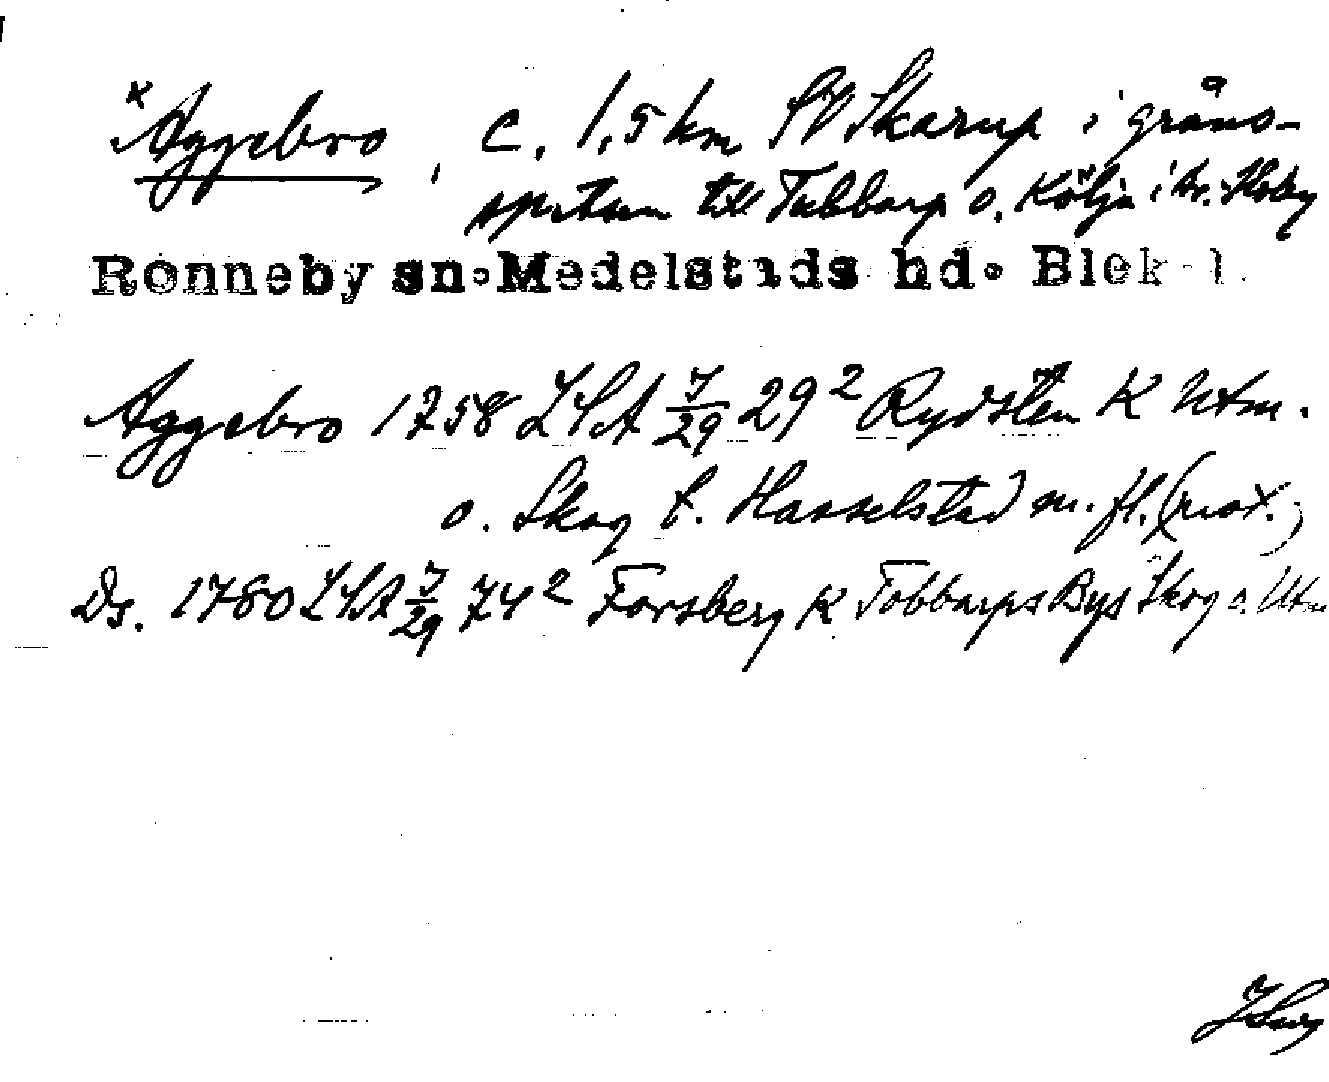 *Aggebro, c. 1,5 km SV Skarup i gräns-
spetsen till Tubbarp o. Kölja i Br. Hoby
Ronneby sn. Medelstads hd. Blek. l.
Aggebro 1758 LSA 7/29 29² Rydsten K Utm.
o. Skog t. Hasselstad m. fl. (not.)
Ds. 1780 LSA 7/29 74² Forsberg K Tobbarps Bys Skog o. Utm